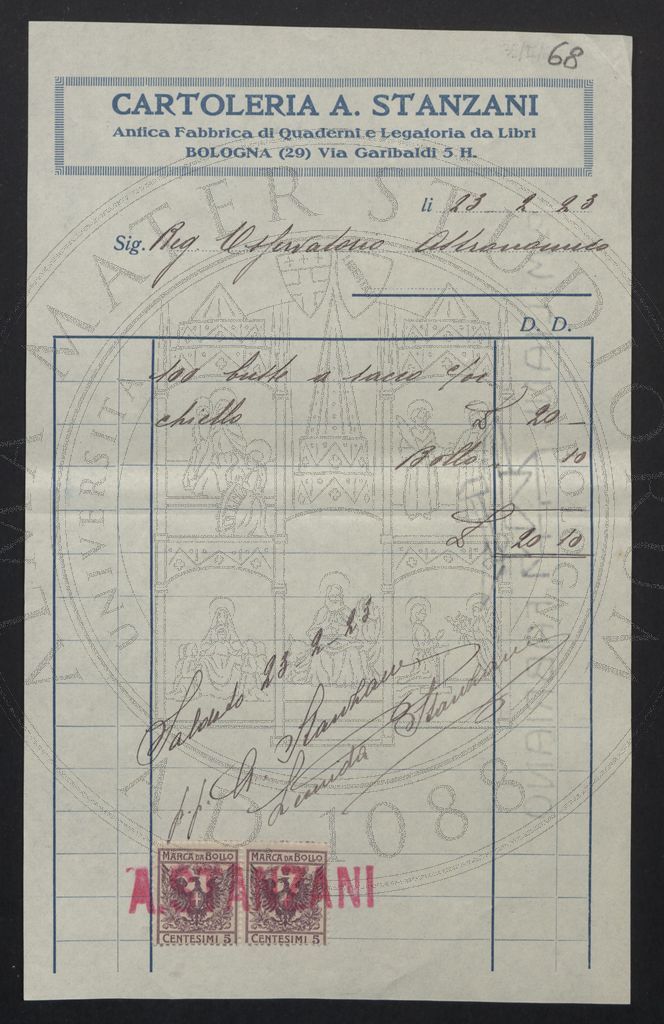 68
CARTOLERIA A. STANZANI
Antica Fabbrica di Quaderni e Legatoria da Libri
BOLOGNA (29) Via Garibaldi 5 H.
li 23 2 23
Sig. Reg. Osservatorio Astronomico
D. D.
100 buste a sacco c/oc
chiello £ 20 —
Bollo 10
£ 20 10
Saldato 23-2-23
p.p. A. Stanzani
Stanzani
MARCA DA BOLLO MARCA DA BOLLO
A. STANZANI
CENTESIMI 5 CENTESIMI 5
ALMA MATER STUDIORUM
UNIVERSITÀ
BOLOGNA
A.D. 1088